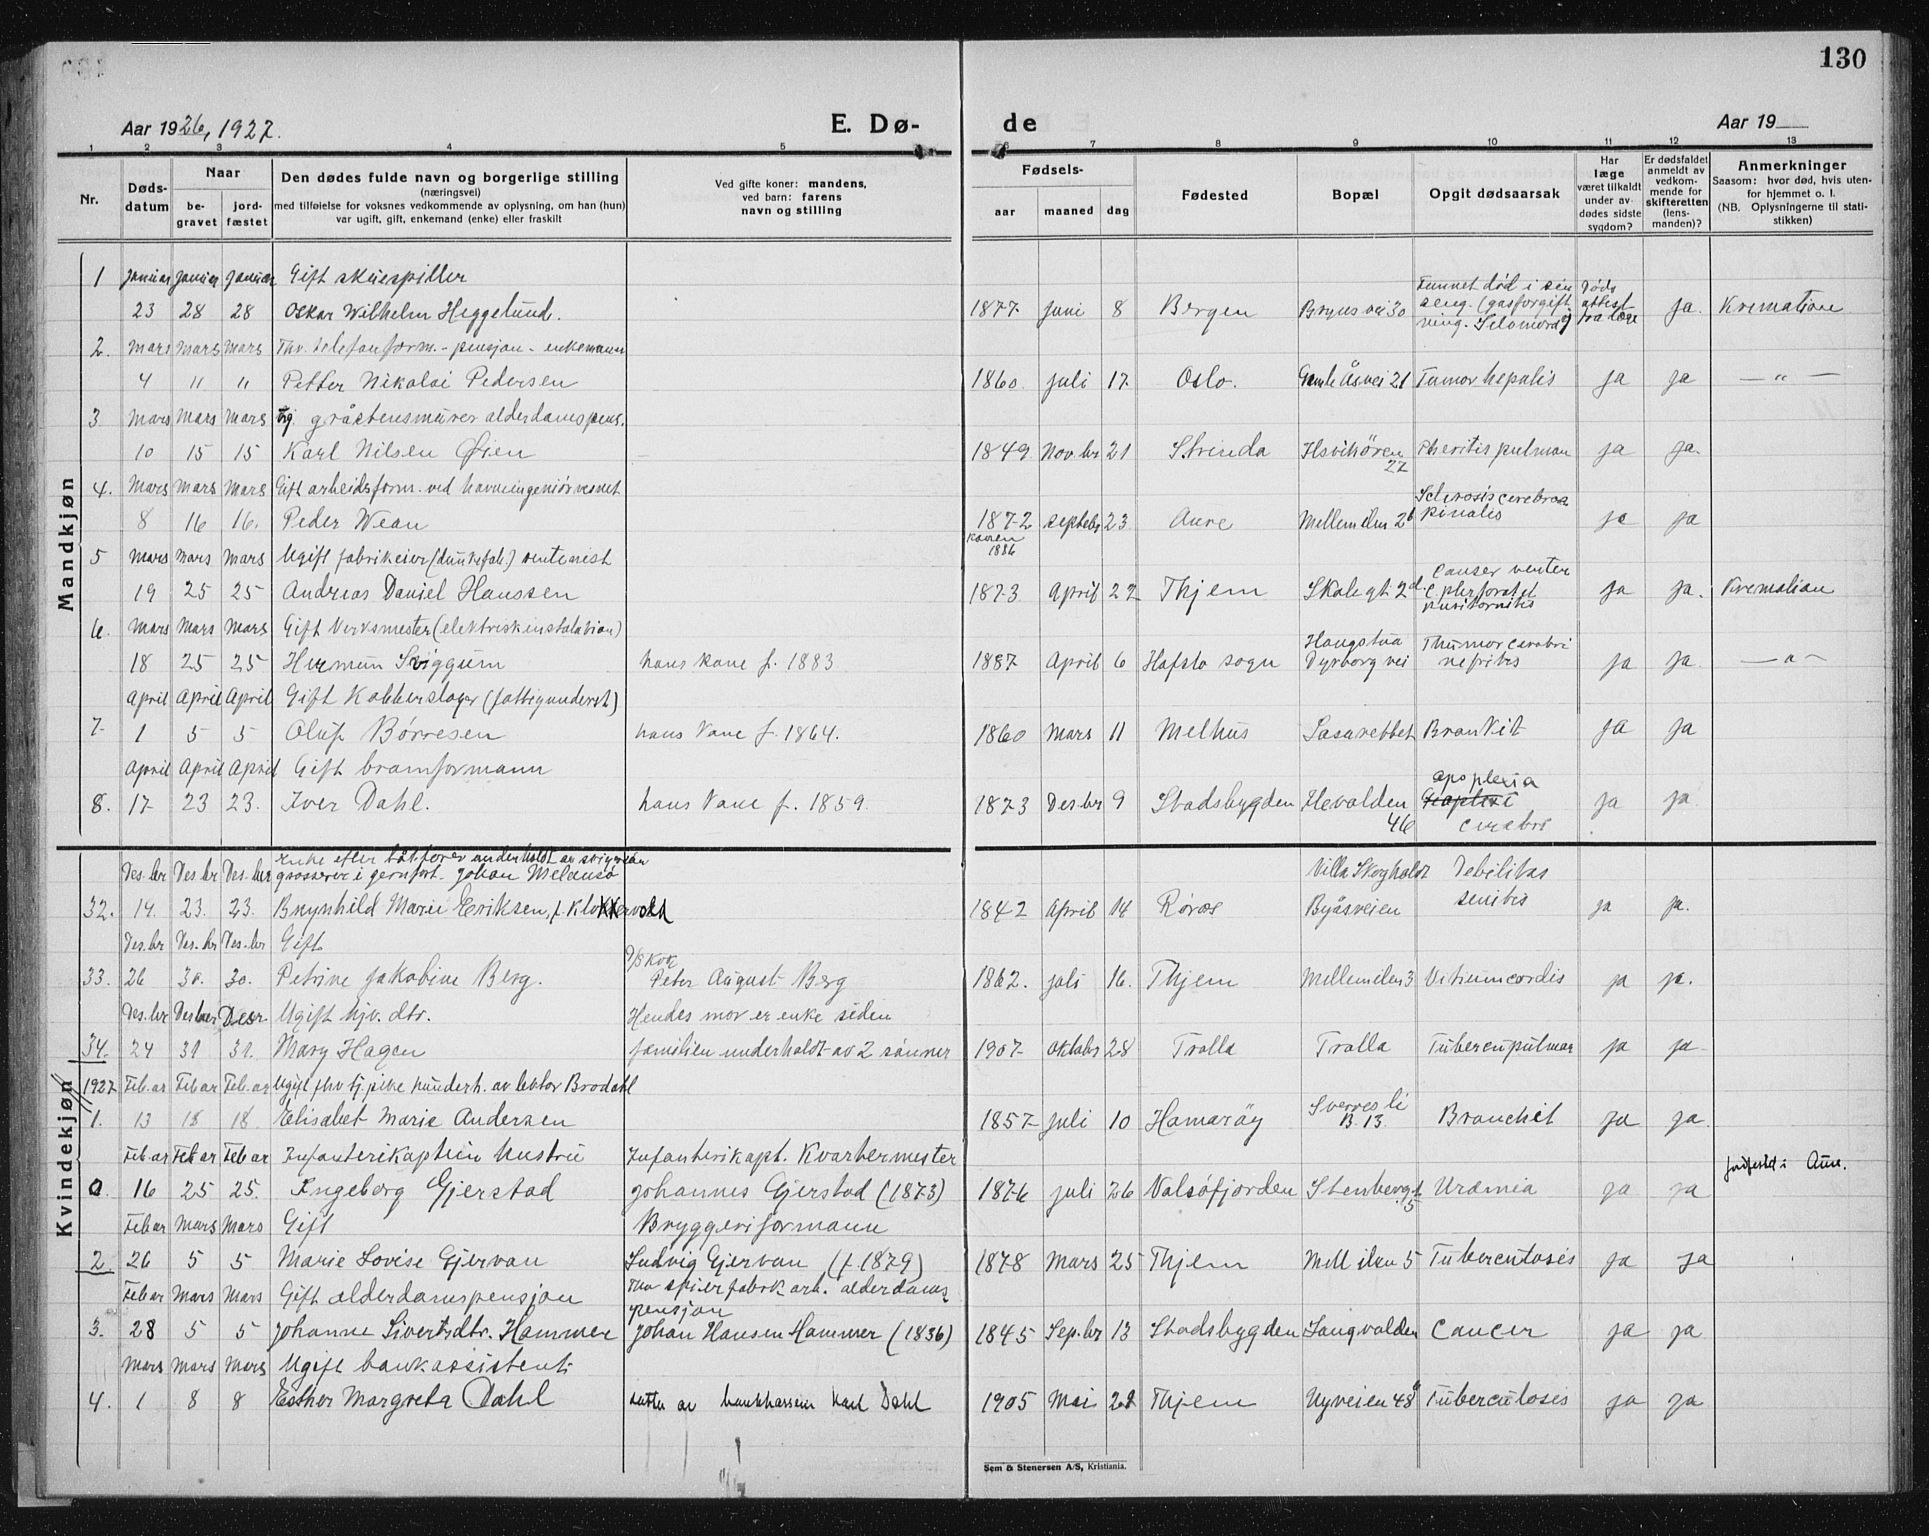 130
Aar 1926, 1927.
E. Dø-
de
Aar 19
1 2 3 4 5 6 7 8 9 10 11 12 13
Nr.
Døds-
datum
Naar
be-
gravet
jord-
fæstet
Den dødes fulde navn og borgerlige stilling
(næringsvei)
med tilføielse for voksnes vedkommende av oplysning, om han (hun)
var ugift, gift, enkemand (enke) eller fraskilt
Ved gifte koner: mandens,
ved barn: farens
navn og stilling
Fødsels-
aar maaned dag
Fødested
Bopæl
Opgit dødsaarsak
Har
læge
været tilkaldt
under av-
dødes sidste
sygdom?
Er dødsfaldet
anmeldt av
vedkom-
mende for
skifteretten
(lens-
manden)?
Anmerkninger
Saasom: hvor død, hvis uten-
for hjemmet o. l.
(NB. Oplysningerne til stati-
stikken)
Mandkjøn
1 Januar Januar Januar Gift skuespiller
23 28 28 Oskar Wilhelm Heggelund. 1877 Juni 8 Bergen Brynsvei 30 Funnet død i sin seng. (gasforgiftning. Døds attest fra læge ja. Kremation
2. Mars Mars Mars Thv. telefonform. - pensjon - enkemann
4 " " Petter Nikolai Pedersen 1860. Juli 17 Oslo. Gamle Åsvei 21 Tumor hepatis ja ja — " —
3. Mars Mars Mars gråstensmurer alderdomspens.
10 15 15 Karl Nilsen Øien 1849 Nov.br 21 Strinda Ilsvikøren 27 pulmon ja ja.
4. Mars Mars Mars Gift arbeidsform. ved havneingeniörvesnet
8 16 16. Peder Wean 1872 Septebr 23 Aure Mellemilen 26 Sclerosis cerebrospinalis ja ja
konen
1886
5 Mars Mars Mars Ugift fabrikeier rentenist
19 25 25 Andreas Daniel Hanssen 1873 April 22 Thjem Skolegt 2d. Canser venter perforatet ja ja. Kremation
6. Mars Mars Mars Gift Verksmester (elektriskinstalation)
18 25 25 Hermun Sviggum hans kone f. 1883 1887 April 6 Hafslo sogn Haugstua Dyrborgvei Thumor cerebri nefritis ja ja. — " —
April April April Gift Kobberslager (fattigunderst)
7 1 5 5 Oluf Börresen hans kone f. 1864. 1860 Mars 11 Melhus Lasarettet Bronkit ja ja
April April April Gift bramformann
8. 17 23 23. Iver Dahl. hans kone f. 1859. 1873 Des.br 9 Stadsbygden Hevolden 46 apoplexia cerebri ja ja
Kvindekjøn
Des.br Des.br Des.br Enke efter båtförer underholdt av svigersön
grosserer i gernfort. Johan Melansö
32. 14. 23. 23. Brynhild Marie Eriksen, f. Klokkervold 1842 April 14 Röros Villa Skogholdt Byåsveien Debilitas senilis ja ja.
Des.br Des.br Des.br Gift
33. 26 30. 30. Petrine Jakobine Berg. D/S Kok Peter August Berg 1862. Juli 16. Thjem Mellemilen 3 Vitium cordis ja ja.
Des.br Desber Desr Ugift hjv. dtr. Hendes mor er enke siden
34. 24 31 31. Mary Hagen familien underholdt av 2 sönner 1907 Oktobr 28 Trolla Trolla Tubercupulmar ja ja
1927 Feb.ar Feb.ar Feb.ar Ugift fhv tj. pike underh. av lektor Brodahl
1. 13 18 18. Elisabet Marie Andersen 1857 Juli 10 Hamaröy Sverresli B. 13. Bronchit ja ja.
Feb.ar Feb.ar Feb.ar Infanterikaptein hustru Infanterikapt. Kvartermester
0 16 25 25. Ingeborg Gjerstad Johannes Gjerstad (1873) 1876 Juli 26 Valsöfjorden Stenbergt. 5 Uræmia ja ja jordfestet i Aure.
Feb.ar Mars Mars Gift Bryggeriformann
2 26 5 5 Marie Lovise Gjervan Ludvig Gjervan (f 1879) 1878 Mars 25 Thjem Mell ilen 5 Tuberculosis ja ja
Feb.ar Mars Mars Gift alderdomspensjon Thv spikerfabrk arb. alderdoms
pensjon
3. 28 5 5 Johanne Sivertsdtr. Hammer Johan Hansen Hammer (1836) 1845 Sep.br 13 Stadsbygden Sangvolden Cancer ja ja
Mars Mars Mars Ugift bankassistent
4. 1 8 8 Esther Margreta Dahl datter av bankkasserer Karl Dahl 1905 Mai 28 Thjem Nyveien 48 Tuberculosis ja ja
Sem & Stenersen A/S, Kristiania.